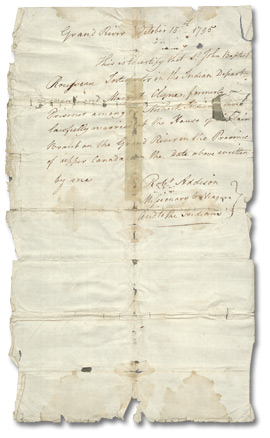 Grand River October 15th 1795
This is to Certify that St John Baptist
Rousseau Interpreter in the Indian Departmt
and Margaret Clyne formerly
Prisoner among
lawfully married the House of
Brant on the Grand River in the Province
of upper Canada on the date above written
by me
Robt Addison
Missionary
and to the Indians